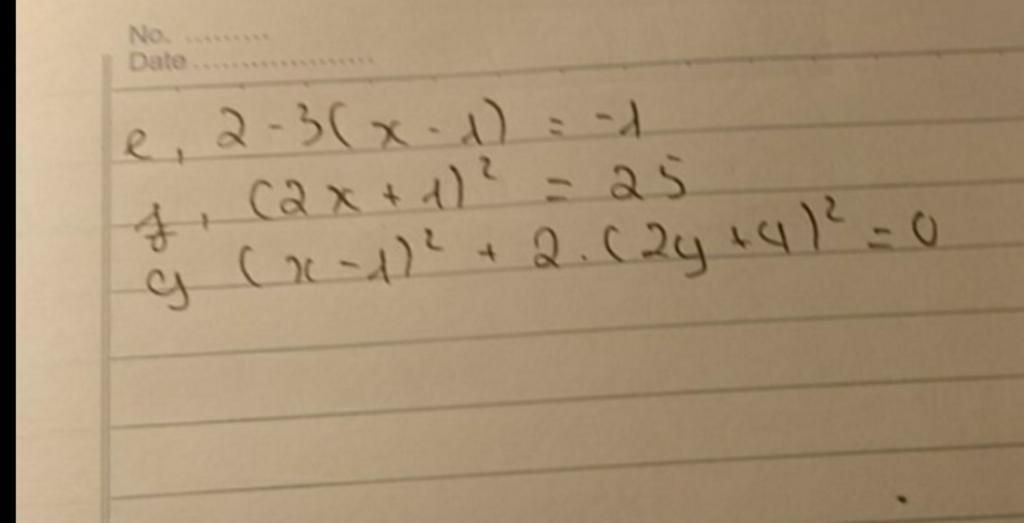 No. .........
Date ...................
e, 2 - 3(x - 1) = -1
f, (2x + 1)² = 25
g (x - 1)² + 2.(2y + 4)² = 0